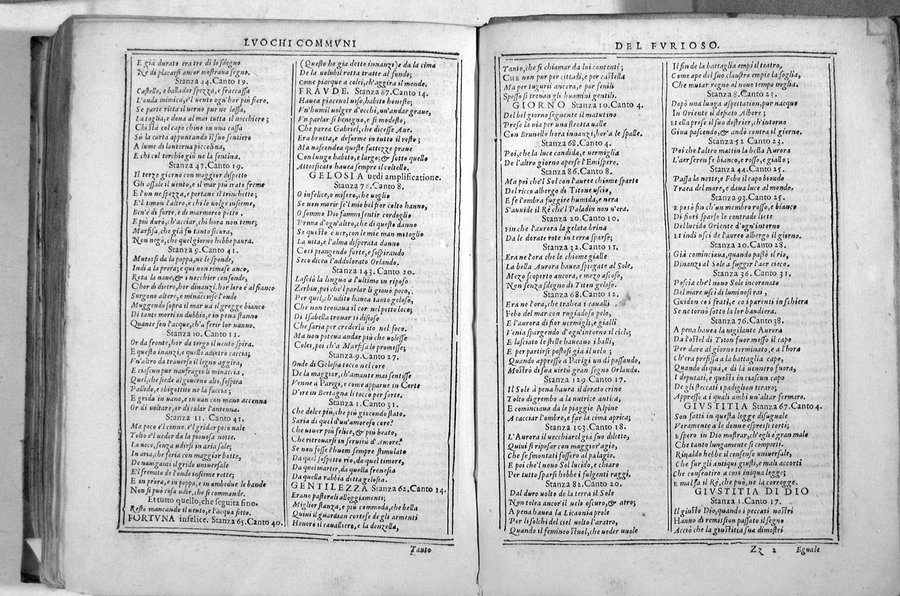 LVOCHI COMMVNI
E già durato era tre dì lo sdegno
Nè di placarsi ancor mostraua segno.
Stanza 14. Canto 19.
Castello, e ballador spezza, e fraccassa
L'onda nimica, e'l uento ogn'hor più fiero.
Se parte ritta il uerno pur ne lassa,
La taglia, e dona al mar tutta il nocchiero;
Chi sta col capo chino in una cassa
Sù la carta appuntando il suo sentiero
A lume di lanterna piccolina,
E chi col torchio giù ne la sentina.
Stanza 47. Canto 19.
Il terzo giorno con maggior dispetto
Gli assale il uento, e il mar più irato freme
E l'un ne spezza, e portane il trinchetto;
E'l timon l'altro, e chi lo uolge insieme,
Ben'è di forte, e di marmoreo petto
E più duro, ch'acciar, chi hora non teme;
Marfisa, che già fu tanto sicura,
Non negò, che quel giorno hebbe paura.
Stanza 9. Canto 41.
Mutosi da la poppa, ne le sponde,
Indi a la prora; e qui non rimase anco,
Rota la naue, & i nocchier confonde,
Ch'or di dietro, hor dinanzi, hor loro è al fianco
Surgono altere, e minacciose l'onde
Muggendo sopra il mar uà il gregge bianco
Di tante morti in dubbio, e in pena stanno
Quante son l'acque, ch'a ferir lor uanno.
Stanza 10. Canto 11.
Or da fronte, hor da tergo il uento spira,
E questo inanzi, e quello adietro caccia;
Vn'altro da trauerso il legno aggira,
E ciascun pur naufragio li minaccia,
Quel, che siede al gouerno alto, sospira
Pallido, e sbigottito ne la faccia;
E grida in uano, e in uan con mano accenna
Or di uoltare, or di calar l'antenna.
Stanza 11. Canto 41.
Ma poco e'l cenno, e'l gridar poco uale
Tolto è'l ueder da la piouosa notte.
La uoce, senza udirsi in aria sale;
In aria, che feria con maggior botto,
De nauiganti il grido uniuersale
E'l fremito de l'onde insieme rotte;
E in prora, e in poppa, e in ambedue le bande
Non si può cosa udir, che si commande.
Et tutto quello, che seguita fino.
Resto mancando il uento, e l'acqua fino.
FORTVNA infelice. Stanza 65. Canto 40.
(Questo ho già detto innanzi) e da la cima
De la uolubil rotta tratte al fondo;
Come piacque a colei, ch'aggira il mondo.
FRAVDE. Stanza 87. Canto 14.
Hauea piaceuol uiso, habito honesto;
Vn'humil uolger d'occhi, un'andar graue,
Vn parlar sì benigno, e sì modesto,
Che parea Gabriel, che dicesse Aue.
Era brutta, e deforme in tutto il resto;
Ma nascondea queste fattezze praue
Con lungo habito, e largo; & sotto quello
Attossicato hauea sempre il coltello.
GELOSIA uedi amplificatione.
Stanza 76. Canto 8.
O infelice, o misero, che uoglio
Se non morir se'l mio bel fior colto hanno;
O sommo Dio fammi sentir cordoglio
Prima d'ogn'altro, che di questo danno
Se questo è uer, con le mie man mi toglio
La uita, e l'alma disperata danno
Così piangendo forte, e sospirando
Seco dicea l'adolorato Orlando.
Stanza 143. Canto 20.
Lasciò la lingua a l'ultimo in riposo
Zerbin, poi che'l parlar lì giouo poco,
Per quel, ch'udito hauea tanto geloso,
Che non trouaua il cor nel petto loco;
Di Isabella trouar sì disioso
Che saria per crederla ito nel foco.
Ma non poteua andar più che uolesse
Colei, poi ch'a Marfisa lo promesse;
Stanza 9. Canto 27.
Onde di Gelosia tocco nel core
De la maggior, ch'amante mai sentisse
Venne a Parigi, e come apparue in Corte
D'ire in Bertagna li tocco per sorte.
Stanza 1. Canto 31.
Che dolce più, che più giocondo stato,
Saria di quel d'un'amoroso core?
Che uiuer più felice, e più beato,
Che ritrouarsi in seruitù d'Amore?
Se non fosse l'huom sempre stimulato
Da quel sospetto rio, da quel timore,
Da quel martir, da quella frenesia
Da quella rabbia detta gelosia.
GENTILEZZA Stanza 62. Canto 14.
Erano pastorali alloggiamenti;
Miglior stanza, e più commoda, che bella
Quiui il guardian cortese de gli armenti
Honoro il caualliero, e la donzella,
Tanto
DEL FVRIOSO.
Tanto, che si chiamar da lui contenti;
CHE non pur per cittadi, e per castella
Ma per tuguri ancora, e per fenili
Spesso si trouan gli huomini gentili.
GIORNO Stanza 10. Canto 4.
Del bel giorno seguente il matutino
Prese la via per una stretta ualle
Con Brunello hora innanzi, hor'a le spalle.
Stanza 68. Canto 4.
Poi, che la luce candida, e uermiglia
De l'altro giorno aperse l'Emispero.
Stanza 86. Canto 8.
Ma poi che'l Sol con l'aurate chiome sparte
Del ricco albergo di Titone uscio,
E fe l'ombra fuggire humida, e nera
S'auuide il Rè che'l Paladin non u'era.
Stanza 20. Canto 10.
Fin che l'aurora la gelata brina
Da le dorate rote in terra sparse;
Stanza 32. Canto 11.
Era ne l'hora che le chiome gialle
La bella Aurora hauea spiegate al Sole,
Mezo scoperto ancora, e mezo ascoso,
Non senza sdegno di Titon geloso.
Stanza 68. Canto 12.
Era ne l'hora, che trahea i caualli
Febo del mar con rugiadoso pelo,
E l'aurora di fior uermigli, e gialli
Venia spargendo d'ogn'intorno il cielo;
E lasciato le stelle haueano i balli,
E per partirsi postosi già il uelo;
Quando appresso a Parigi un dì passando,
Mostrò di sua virtù gran segno Orlando.
Stanza 129 Canto 17.
Il Sole à pena hauea il dorato crine
Tolto di grembo a la nutrice antica,
E cominciaua da le piaggie Alpine
A cacciar l'ombre, e far la cima aprica;
Stanza 103. Canto 18.
L'Aurora il uecchiarel già suo diletto,
Quiui si riposar con maggior'agio,
Che se smontati fossero al palagio.
E poi che'l nouo Sol lucido, e chiaro
Per tutto sparsi hebbe i fulgenti raggi,
Stanza 82. Canto 20.
Dal duro uolto de la terra il Sole
Non tolea ancor il uelo oscuro, & atro;
A pena hauea la Licaonia prole
Per li solchi del ciel uolto l'aratro,
Quando il femineo stuol, che ueder uuole
Il fin de la battaglia empì il teatro,
Come ape del suo claustro empie la soglia,
Che mutar regno al nouo tempo uoglia.
Stanza 8. Canto 23.
Dopò una lunga aspettation, pur nacque
In Oriente il desiato Albore;
Et ella prese il suo destrier, ch'intorno
Giua pascendo, & andò contra il giorno.
Stanza 52 Canto 23.
Poi che l'altro mattin la bella Aurora
L'aer seren fe bianco, e rosso, e giallo;
Stanza 44. Canto 25.
Passa la notte, e Febo il capo biondo
Traea del mare, e daua luce al mondo.
Stanza 93. Canto 25.
E posò fin ch'un nembo rosso, e bianco
Di fiori sparse le contrade liete
Del lucido Oriente d'ogn'intorno
Et indi uscì de l'aureo albergo il giorno.
Stanza 20. Canto 28.
Già cominciaua, quando passò il rio,
Dinanzi al Sole a fuggir l'aer cieco.
Stanza 36. Canto 31.
Poscia che'l nouo Sole incoronato
Del mare uscì di luminosi rai,
Guidon co i frati, e co i parenti in schiera
Se ne tornò sotto la lor bandiera.
Stanza 76. Canto 38.
A pena hauea la uigilante Aurora
Da l'ostel di Titon fuor messo il capo
Per dare al giorno terminato, e a l'hora
Ch'era prefissa a la battaglia capo,
Quando di quà, e di là uennero fuora,
I deputati, e questi in ciascun capo
De gli steccati i padiglion tiraro,
Appresso a i quali ambi un'altar fermaro.
GIVSTITIA Stanza 67. Canto 4.
Son fatti in questa legge disuguale
Veramente a le donne espressi torti;
E spero in Dio mostrar, ch'egli è gran male
Che tanto lungamente si comporti.
Rinaldo hebbe il consenso uniuersale,
Che fur gli antiqui giusti, e male accorti
Che consentiro a così iniqua legge;
E mal fa il Rè, che può, ne la corregge.
GIVSTITIA DI DIO
Stanza 1. Canto 17.
Il giusto Dio, quando i peccati nostri
Hanno di remission passato il segno
Acciò che la giustitia sua dimostri
Zz 2 Eguale